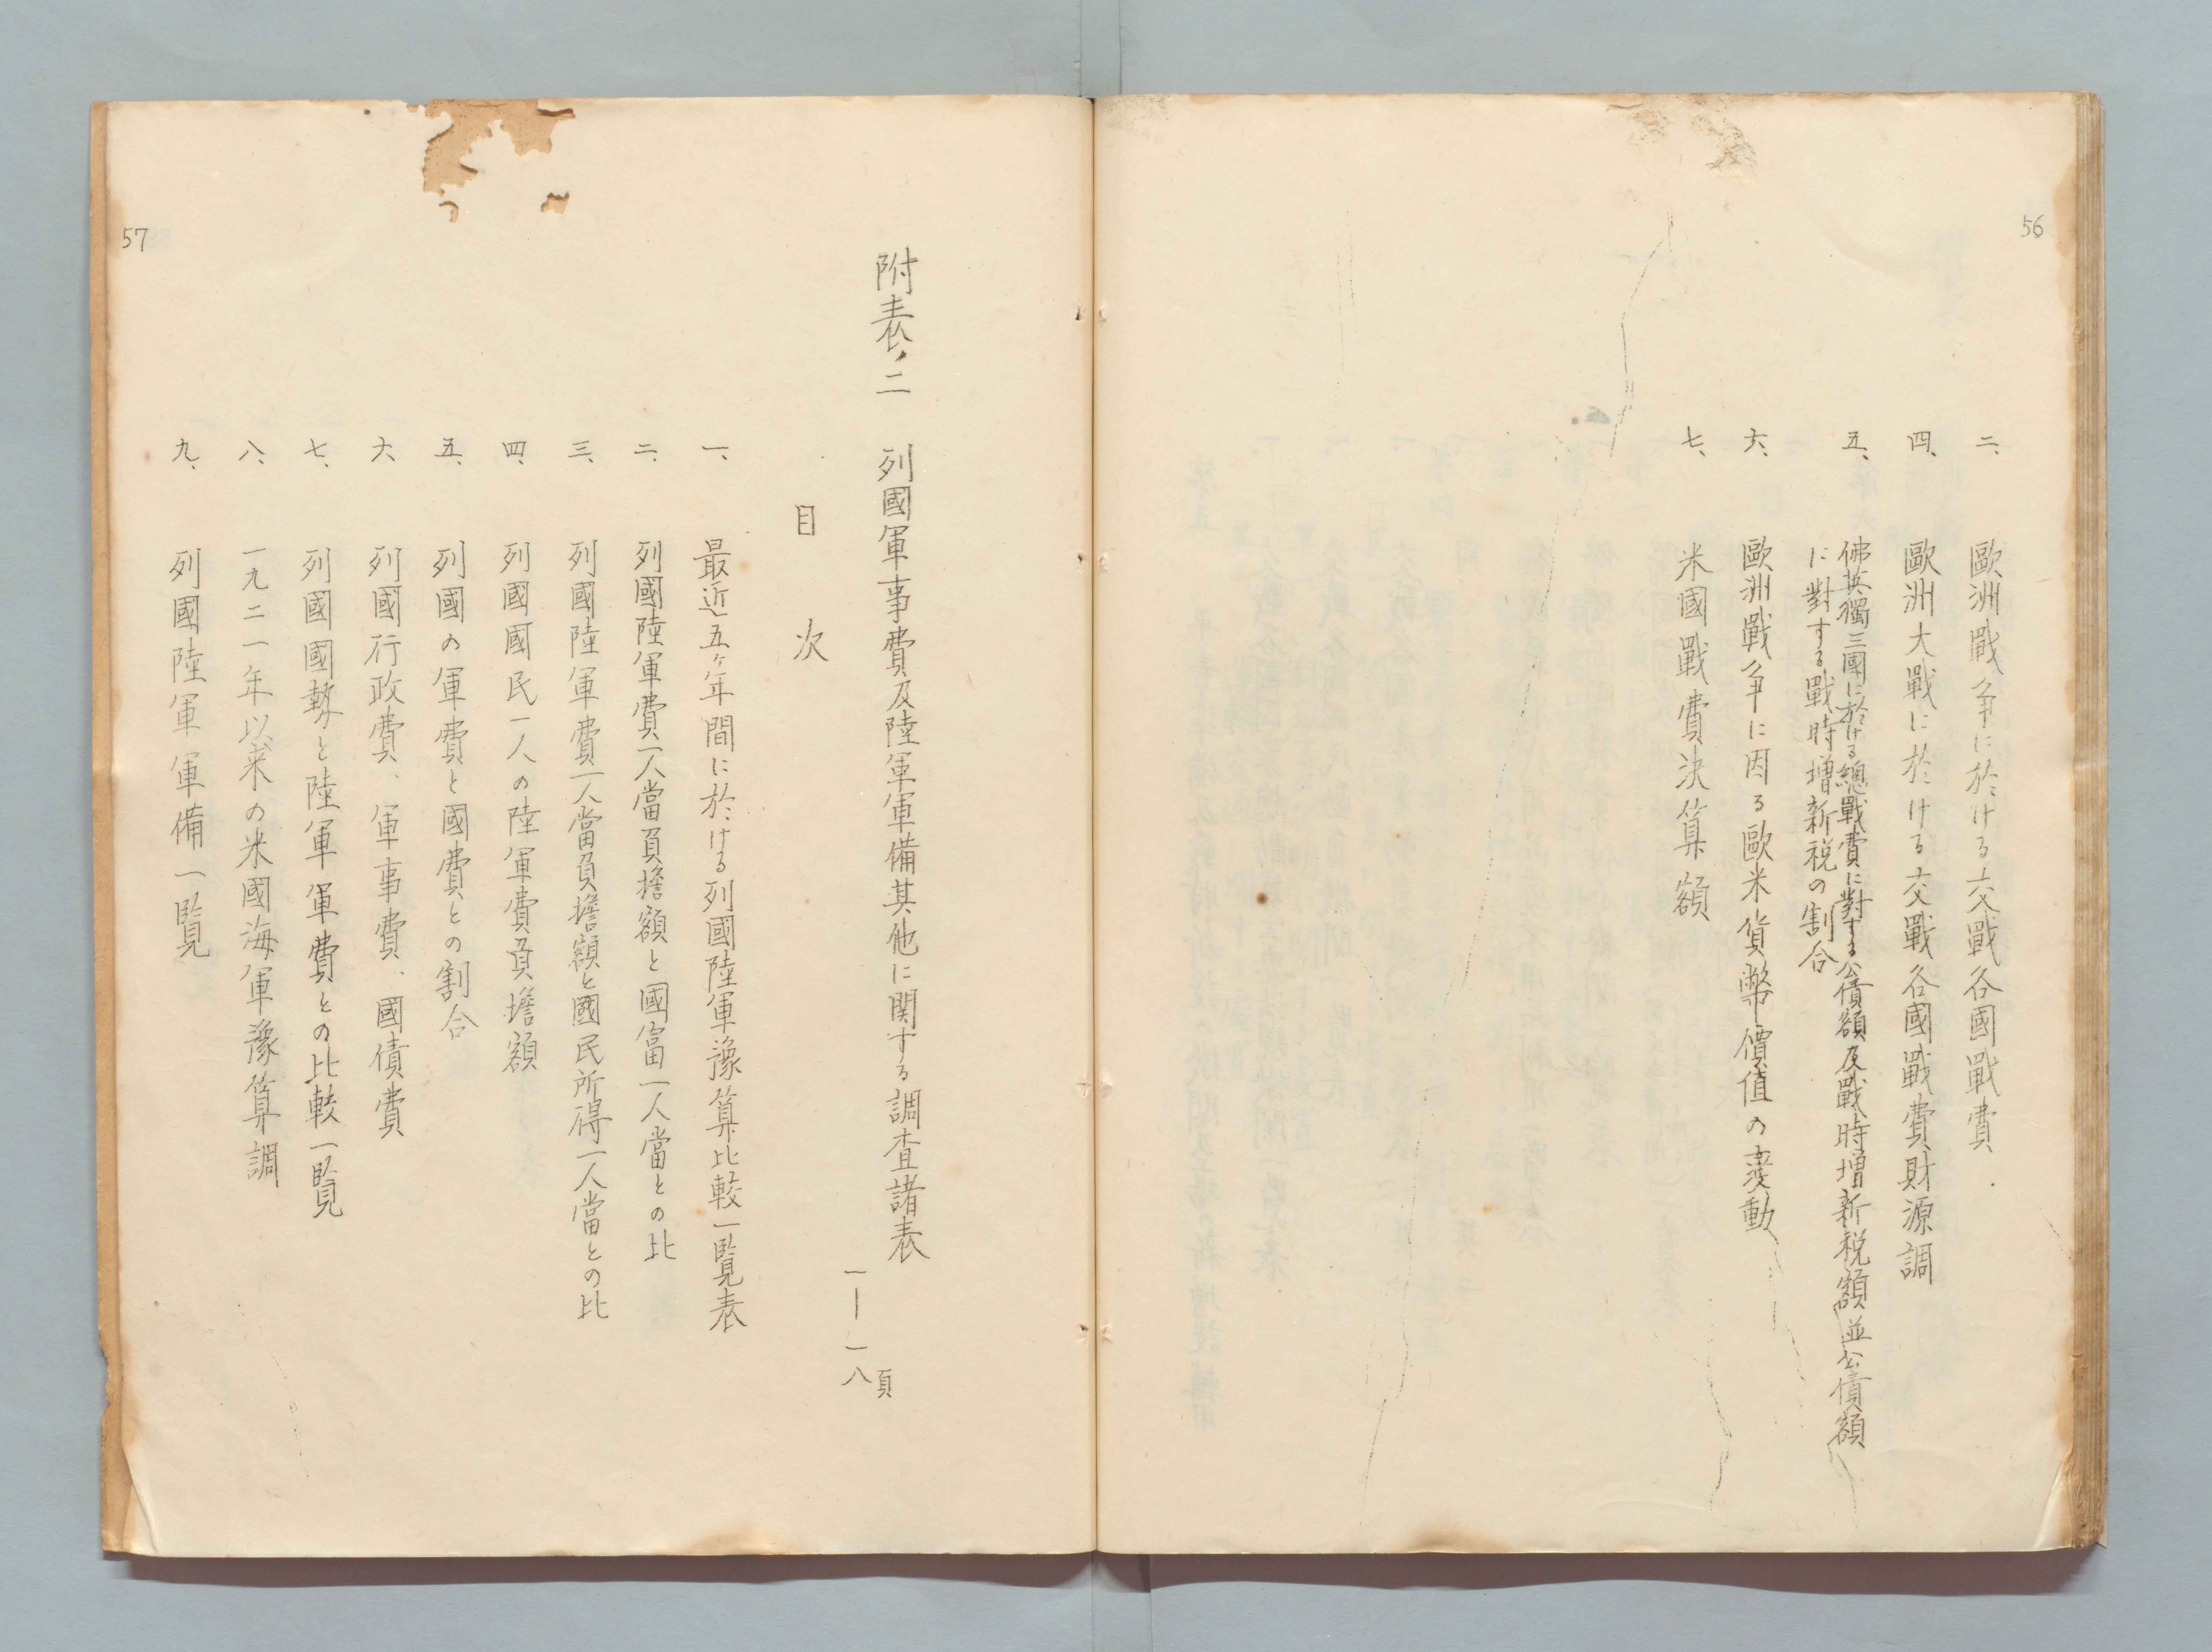 56
二、 歐洲戰爭に於ける交戰各國戰費
四、 歐洲大戰に於ける交戰各國戰費財源調
五、 佛英獨三國に於ける總戰費に對する公債額及戰時増新税額並公債額
に對する戰時増新税の割合
六、 歐洲戰爭に因る歐米貨幣價値の変動
七、 米國戰費決算額
57
附表ノ二 列國軍事費及陸軍軍備其他に関する調査諸表
一―一八頁
目次
一、 最近五ヶ年間に於ける列國陸軍豫算比較一覧表
二、 列國陸軍費一人當負擔額と國富一人當との比
三、 列國陸軍費一人當負擔額と國民所得一人當との比
四、 列國國民一人の陸軍費負擔額
五、 列國の軍費と國費との割合
六、 列國行政費、軍事費、國債費
七、 列國國勢と陸軍軍費との比較一覧
八、 一九二一年以来の米國海軍豫算調
九、 列國陸軍軍備一覧